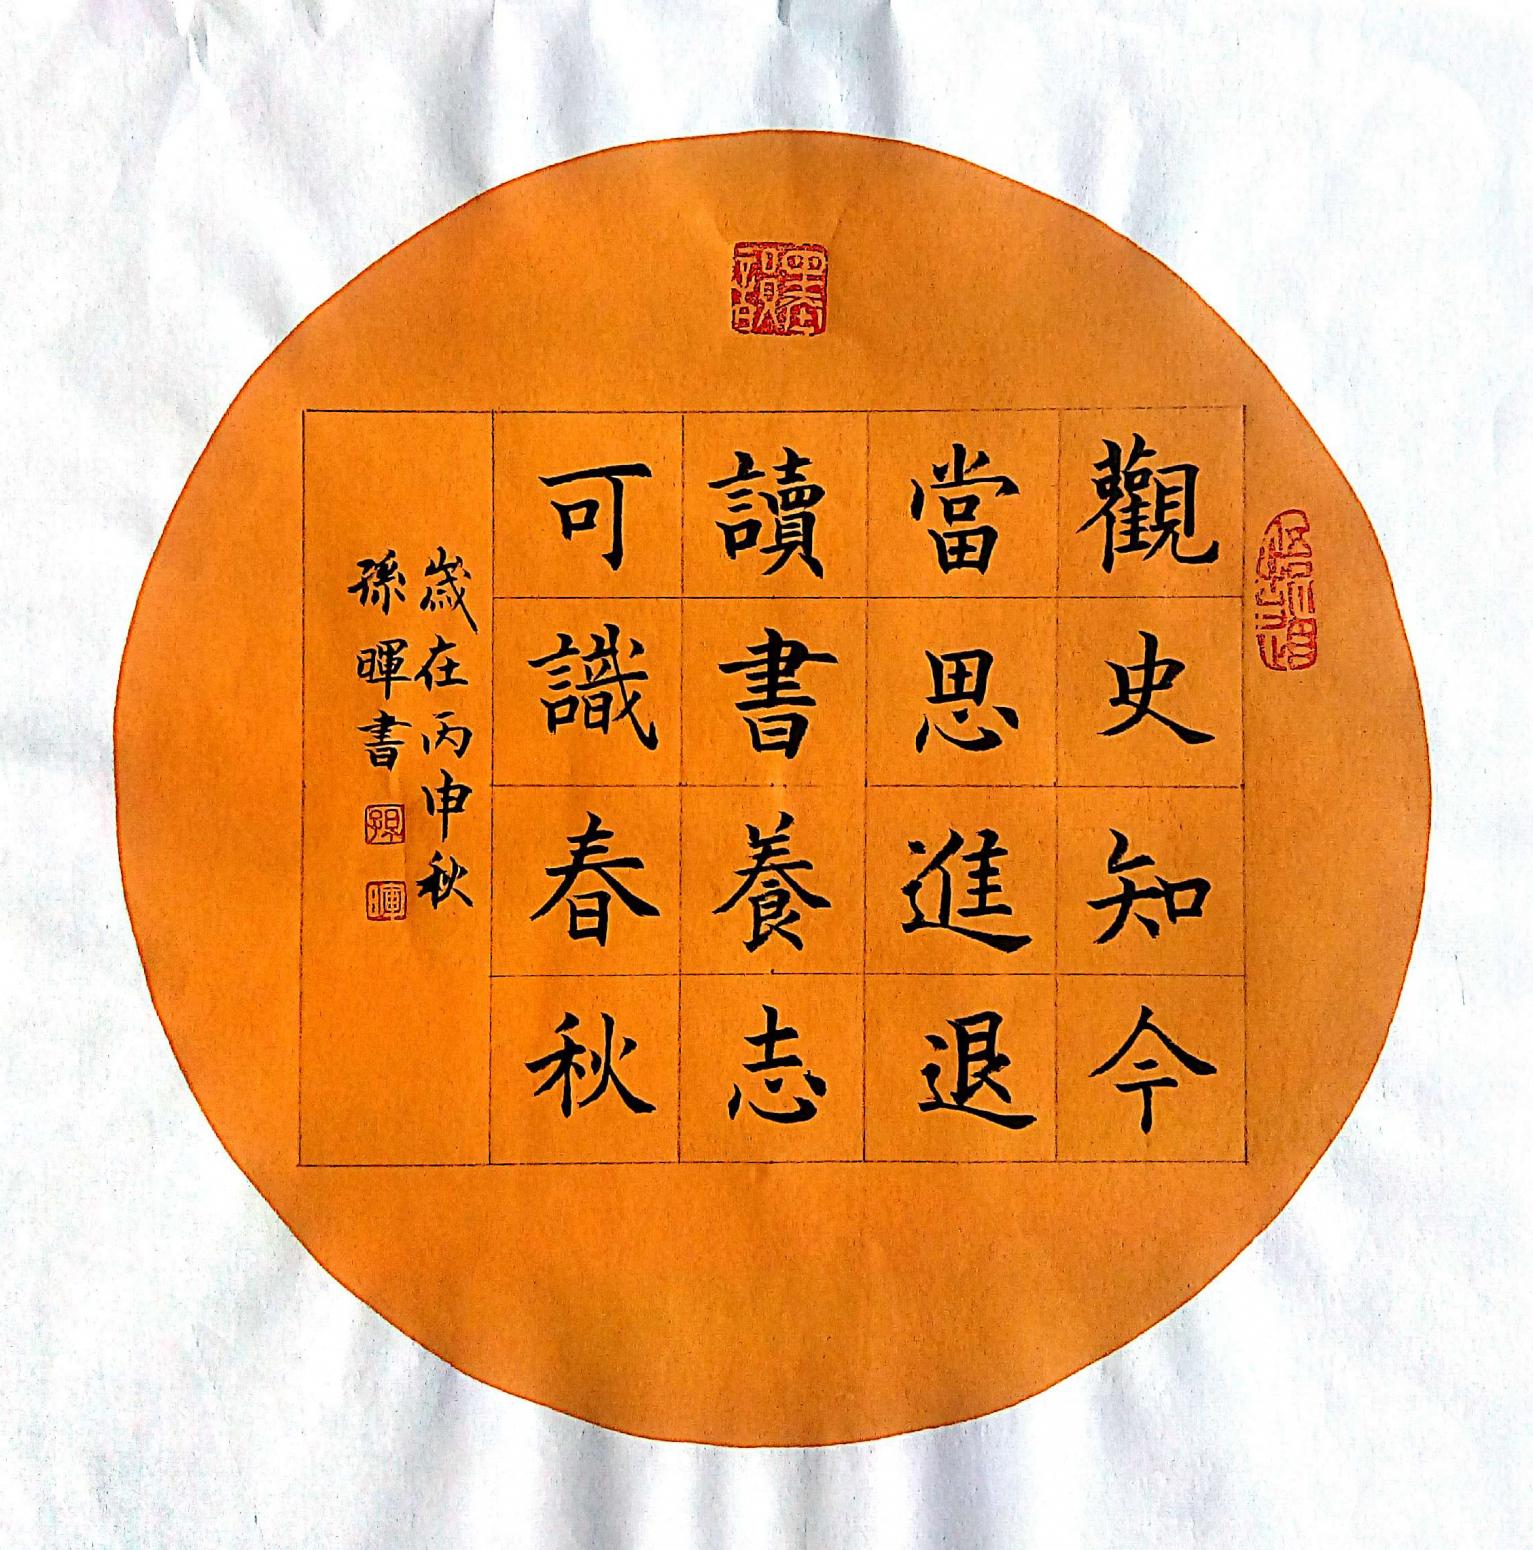 觀史知今
當思進退
讀書養志
可識春秋
歲在丙申秋
孫暉書
孫
暉
墨韻